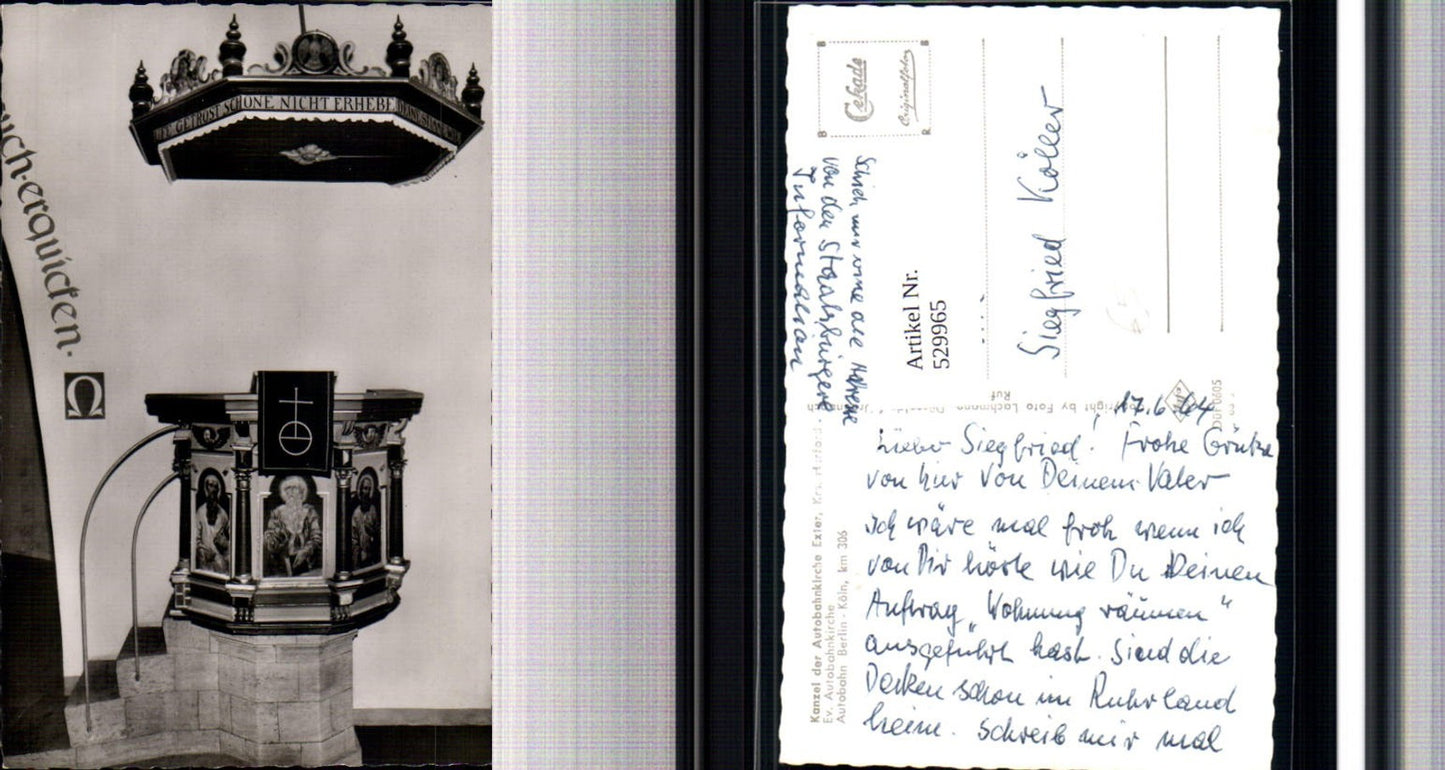 RUFE GETROST SCHONE NICHT ERHEBE DEINE STIMME WIE
euch·erquicken.
Ω
Cekade
Originalfoto
B B
B R
Artikel Nr.
529965
Siegfried Köller
Ruf
Copyright by Foto Lachmann, Düsseldorf
17.6.64
Lieber Siegfried! Frohe Grüße
von hier von Deinem Vater
ich wäre mal froh wenn ich
von Dir hörte wie Du Deinen
Auftrag „Wohnung räumen"
ausgeführt hast. Sind die
Decken schon im Ruhrland
heim. Schreib mir mal
Schick mir eine die
von der Staatsbürgerl
Information
Kanzel der Autobahnkirche Exter, Krs. Herford
Ev. Autobahnkirche
Autobahn Berlin - Köln, km 306